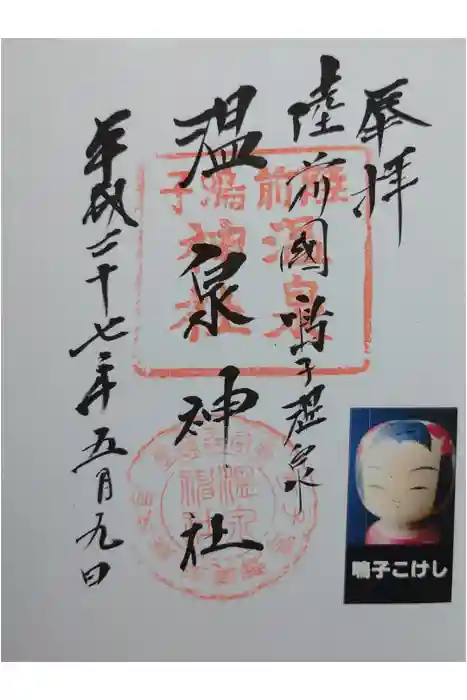 奉拝
陸前國鳴子温泉
温泉神社
平成二十七年五月九日
陸前鳴子
温泉
神社
鳴子こけし